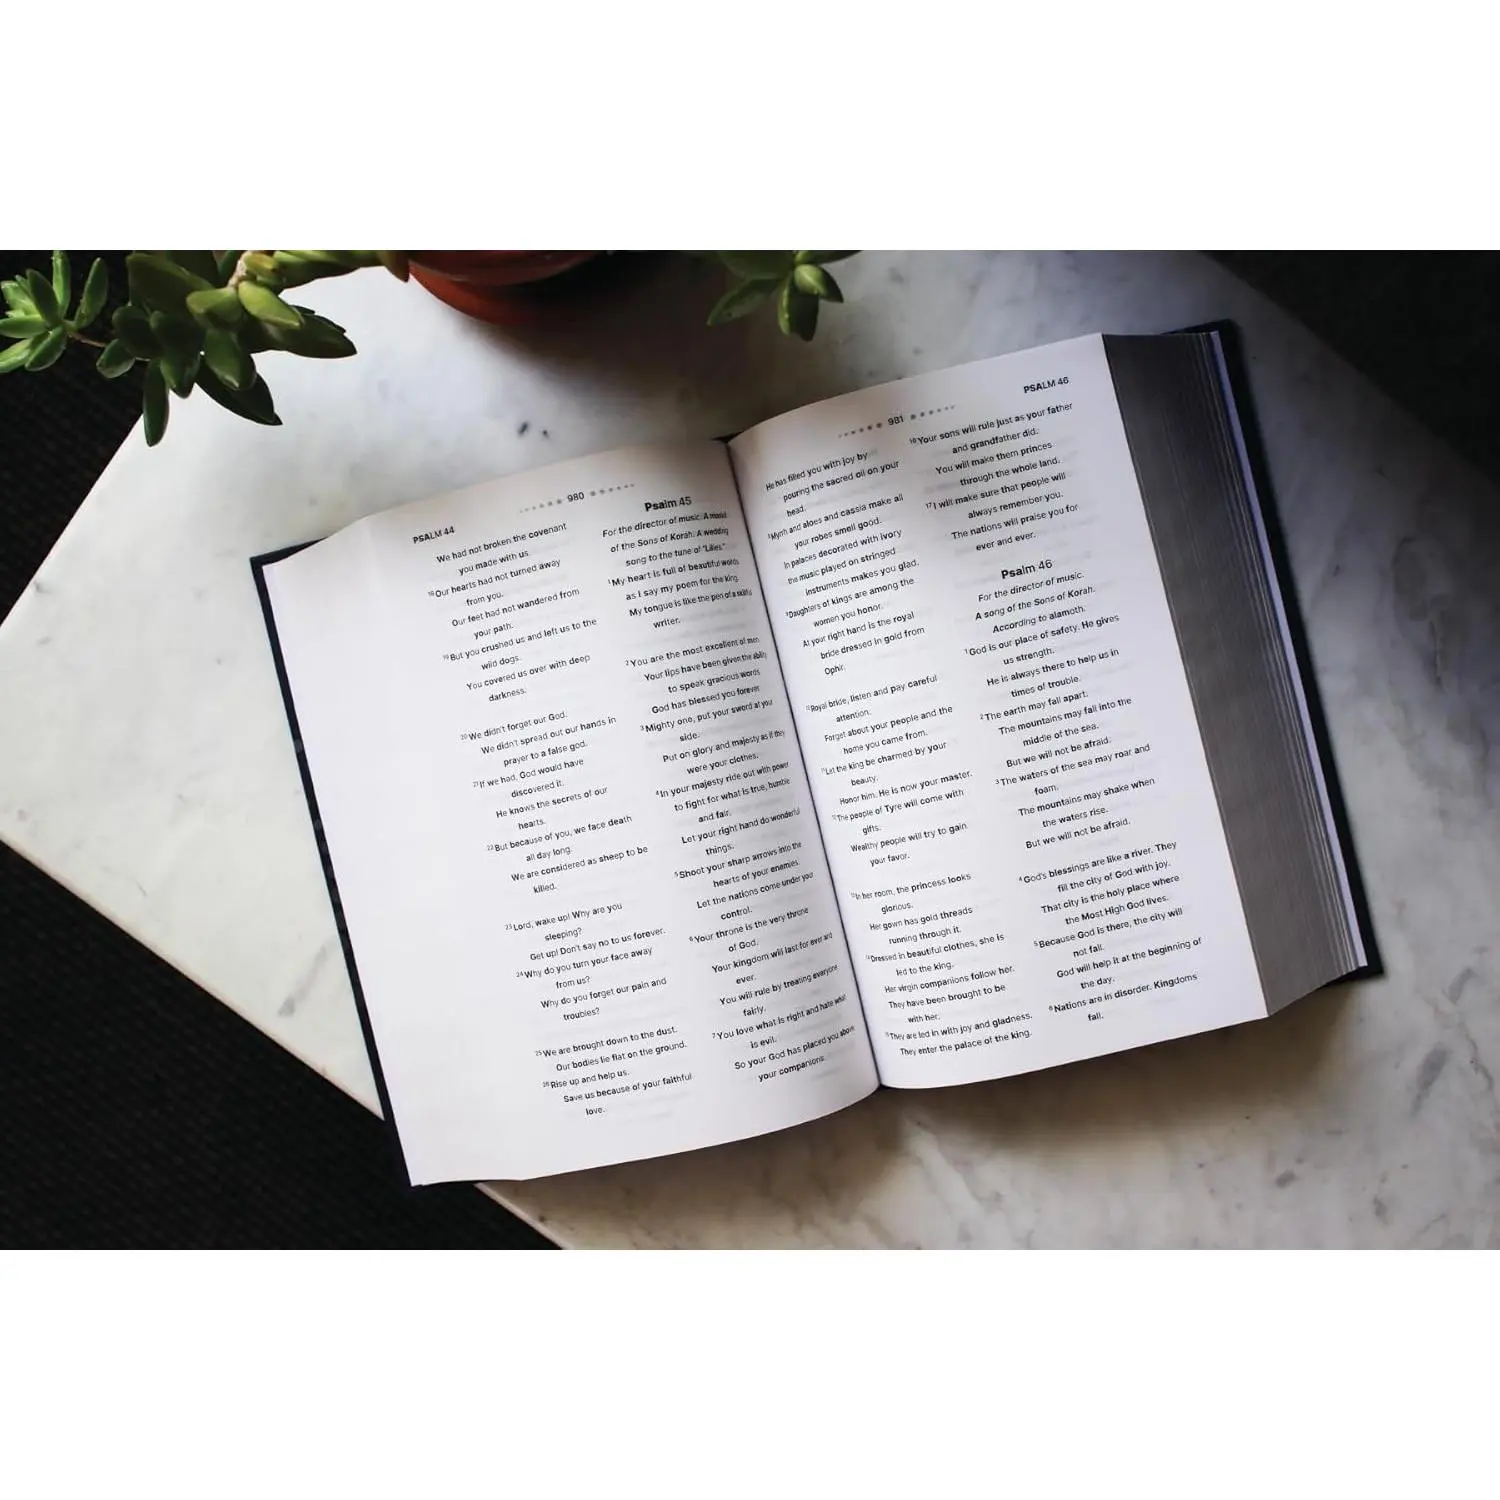 PSALM 44
980
We had not broken the covenant
you made with us.
18 Our hearts had not turned away
from you.
Our feet had not wandered from
your path.
19 But you crushed us and left us to the
wild dogs.
You covered us over with deep
darkness.
20 We didn't forget our God.
We didn't spread out our hands in
prayer to a false god.
21 If we had, God would have
discovered it.
He knows the secrets of our
hearts.
22 But because of you, we face death
all day long.
We are considered as sheep to be
killed.
23 Lord, wake up! Why are you
sleeping?
Get up! Don't say no to us forever.
24 Why do you turn your face away
from us?
Why do you forget our pain and
troubles?
25 We are brought down to the dust.
Our bodies lie flat on the ground.
26 Rise up and help us.
Save us because of your faithful
love.
Psalm 45
For the director of music. A maskil
of the Sons of Korah. A wedding
song to the tune of "Lilies."
1 My heart is full of beautiful words
as I say my poem for the king.
My tongue is like the pen of a skillful
writer.
2 You are the most excellent of men.
Your lips have been given the ability
to speak gracious words.
God has blessed you forever.
3 Mighty one, put your sword at your
side.
Put on glory and majesty as if they
were your clothes.
4 In your majesty ride out with power
to fight for what is true, humble
and fair.
Let your right hand do wonderful
things.
5 Shoot your sharp arrows into the
hearts of your enemies.
Let the nations come under your
control.
6 Your throne is the very throne
of God.
Your kingdom will last for ever and
ever.
You will rule by treating everyone
fairly.
7 You love what is right and hate what
is evil.
So your God has placed you above
your companions.
981
PSALM 46
He has filled you with joy by
pouring the sacred oil on your
head.
8 Myrrh and aloes and cassia make all
your robes smell good.
In palaces decorated with ivory
the music played on stringed
instruments makes you glad.
9 Daughters of kings are among the
women you honor.
At your right hand is the royal
bride dressed in gold from
Ophir.
10 Royal bride, listen and pay careful
attention.
Forget about your people and the
home you came from.
11 Let the king be charmed by your
beauty.
Honor him. He is now your master.
12 The people of Tyre will come with
gifts.
Wealthy people will try to gain
your favor.
13 In her room, the princess looks
glorious.
Her gown has gold threads
running through it.
14 Dressed in beautiful clothes, she is
led to the king.
Her virgin companions follow her.
They have been brought to be
with her.
15 They are led in with joy and gladness.
They enter the palace of the king.
16 Your sons will rule just as your father
and grandfather did.
You will make them princes
through the whole land.
17 I will make sure that people will
always remember you.
The nations will praise you for
ever and ever.
Psalm 46
For the director of music.
A song of the Sons of Korah.
According to alamoth.
1 God is our place of safety. He gives
us strength.
He is always there to help us in
times of trouble.
2 The earth may fall apart.
The mountains may fall into the
middle of the sea.
But we will not be afraid.
3 The waters of the sea may roar and
foam.
The mountains may shake when
the waters rise.
But we will not be afraid.
4 God's blessings are like a river. They
fill the city of God with joy.
That city is the holy place where
the Most High God lives.
5 Because God is there, the city will
not fall.
God will help it at the beginning of
the day.
6 Nations are in disorder. Kingdoms
fall.